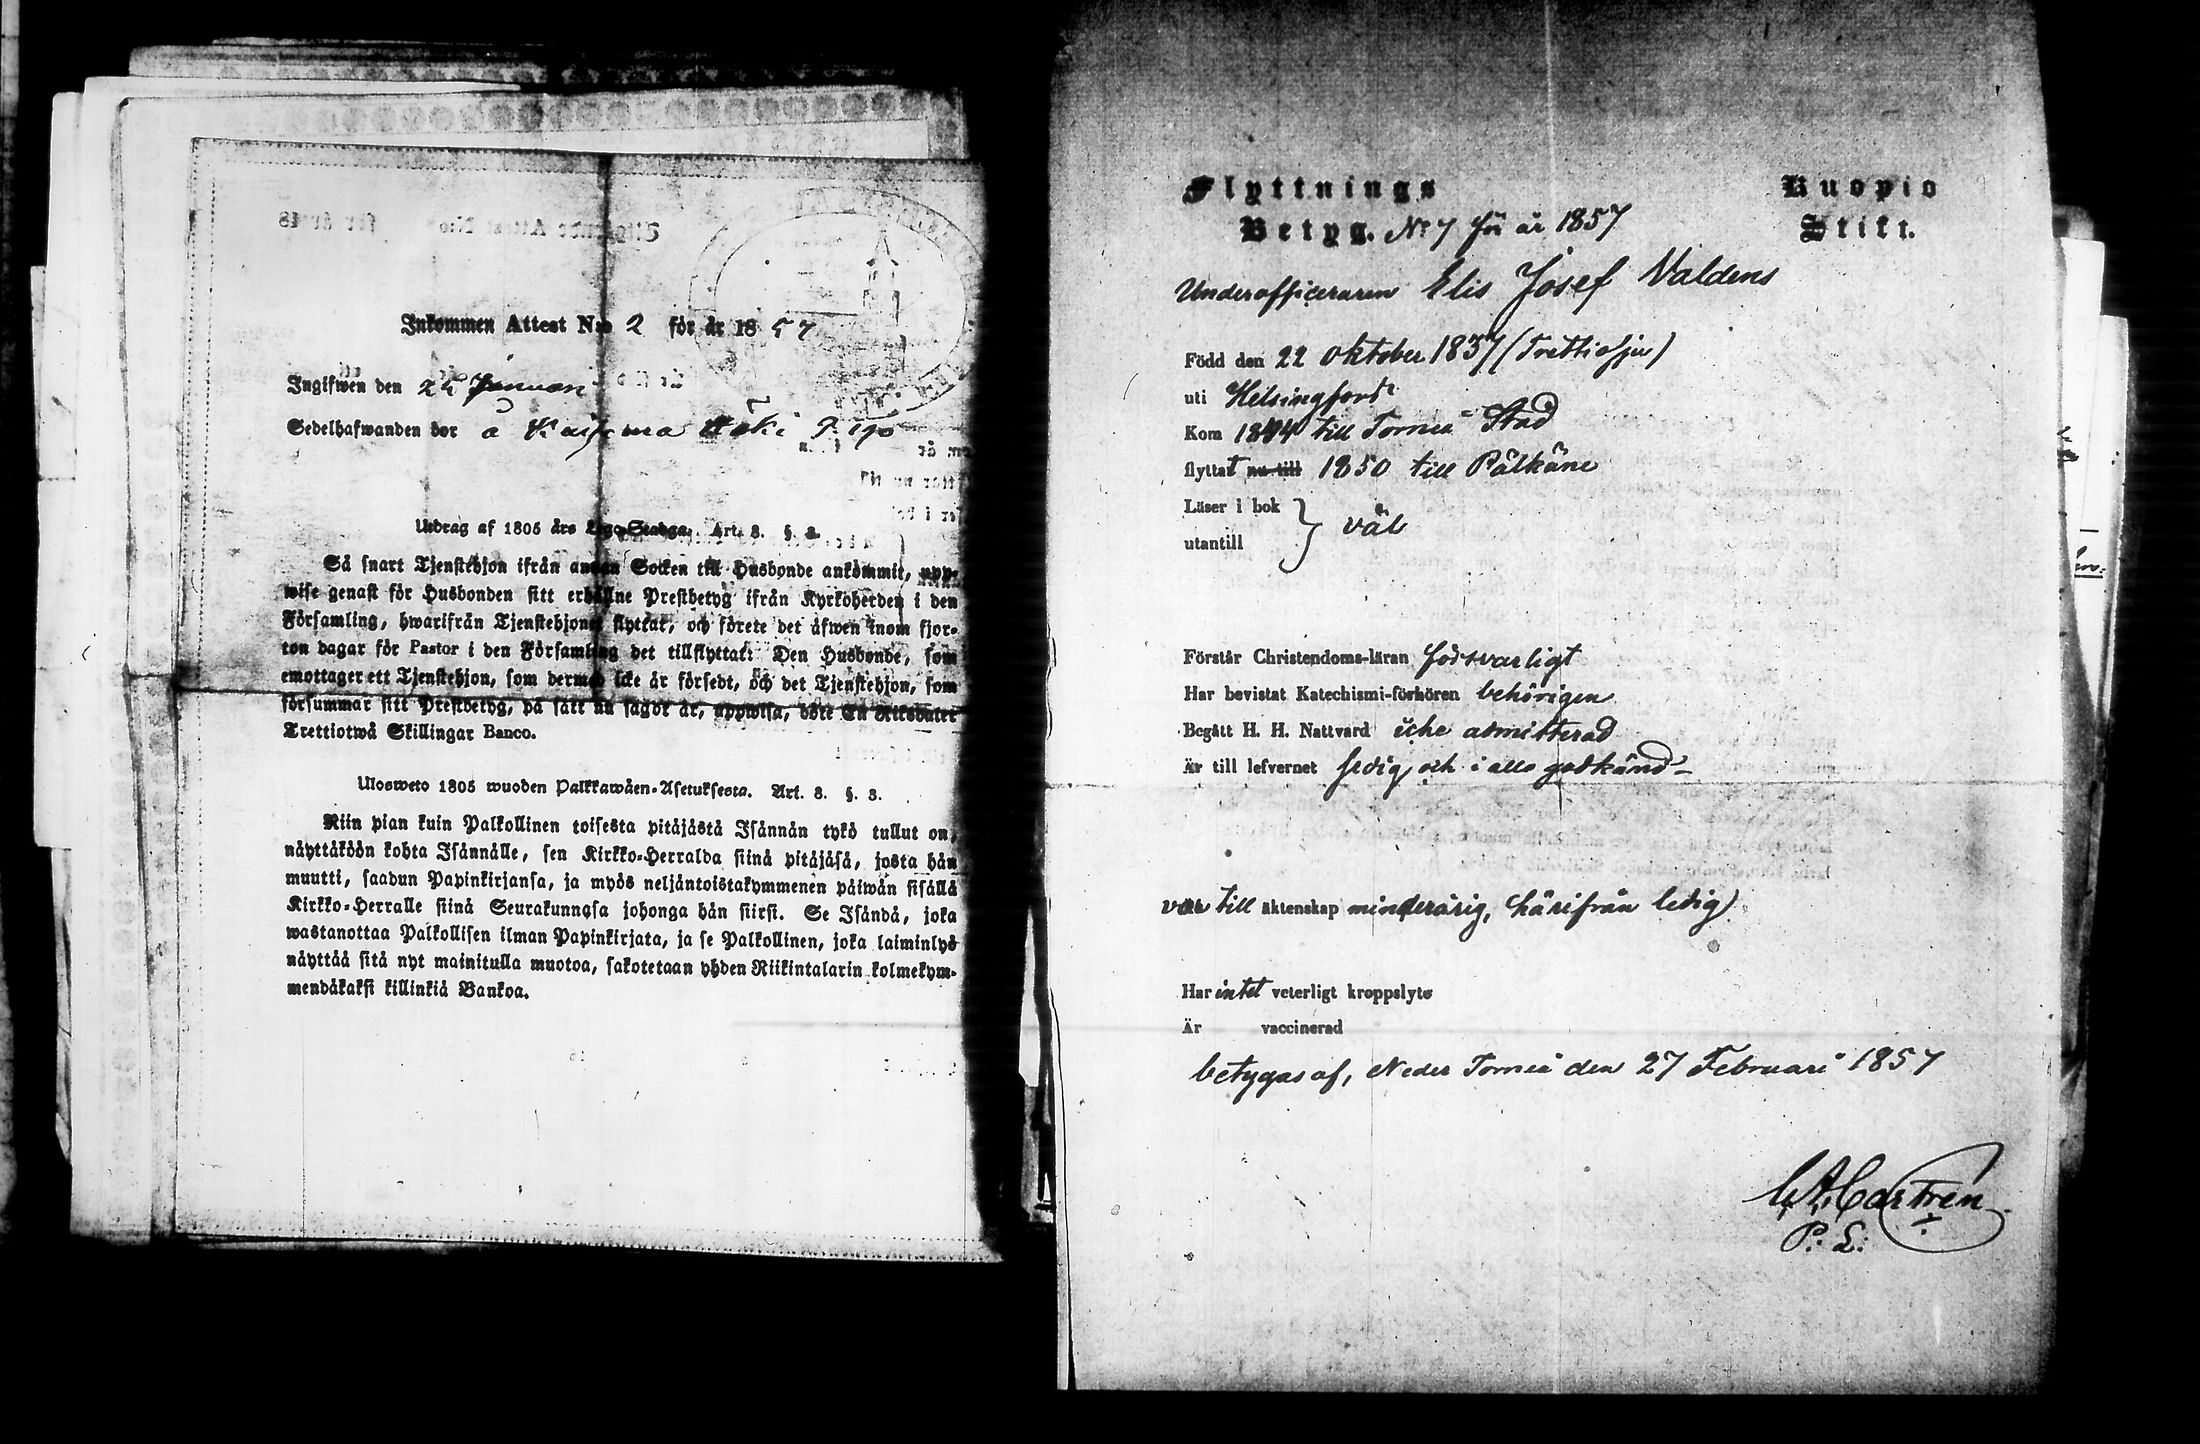 Inkommen Attest N:o 2 för år 1857
Ingifwen den 25 Januari
Sedelhafwanden bor å
Utdrag af 1805 års Lego-Stadga. Art. 3. §. 3.
Så snart Tjenstehjon ifrån annan Socken till Husbonde ankommit, upp-
wise genast för Husbonden sitt erhållne Prestbetyg ifrån Kyrkoherden i den
Församling, hwarifrån Tjenstehjonet flyttat, och förete det äfwen inom fjor-
ton dagar för Pastor i den Församling det tillflyttat: Den Husbonde, som
emottager ett Tjenstehjon, som dermed icke är försedt, och det Tjenstehjon, som
försummar sitt Prestbetyg, på sätt nu sagdt är, uppwisa, böte En Riksdaler
Trettiotwå Skillingar Banco.
Ulosweto 1805 wuoden Palkkawäen-Asetuksesta. Art. 3. §. 3.
Niin pian kuin Palkollinen toisesta pitäjästä Isännän tykö tullut on,
näyttäköön kohta Isännälle, sen Kirkko-Herralda siinä pitäjäsä, josta hän
muutti, saadun Papinkirjansa, ja myös neljäntoistakymmenen päiwän sisällä
Kirkko-Herralle siinä Seurakunnasa johonga hän siirsi. Se Isändä, joka
wastanottaa Palkollisen ilman Papinkirjata, ja se Palkollinen, joka laiminlyö
näyttää sitä nyt mainitulla muotoa, sakotetaan yhden Riikintalarin kolmekym-
mendäkaksi killinkiä Bankoa.
Flyttnings Kuopio
Betyg. No 7 för år 1857 Stift.
Underofficeraren Elis Josef Valdens
Född den 22 oktober 1837 (Trettiosju)
uti Helsingfors
Kom 1844 till Torneå Stad
flyttat nu till 1850 till Pälkäne
Läser i bok } väl
utantill
Förstår Christendoms-läran försvarligt
Har bevistat Katechismi-förhören behörigen
Begått H. H. Nattvard icke admitterad
Är till lefvernet ledig och i allo godkänd
var till äktenskap minderårig, härifrån ledig
Har intet veterligt kroppslyte
Är vaccinerad
betygas af, Neder Torneå den 27 Februari 1857
C. A. Castrén
P: L: